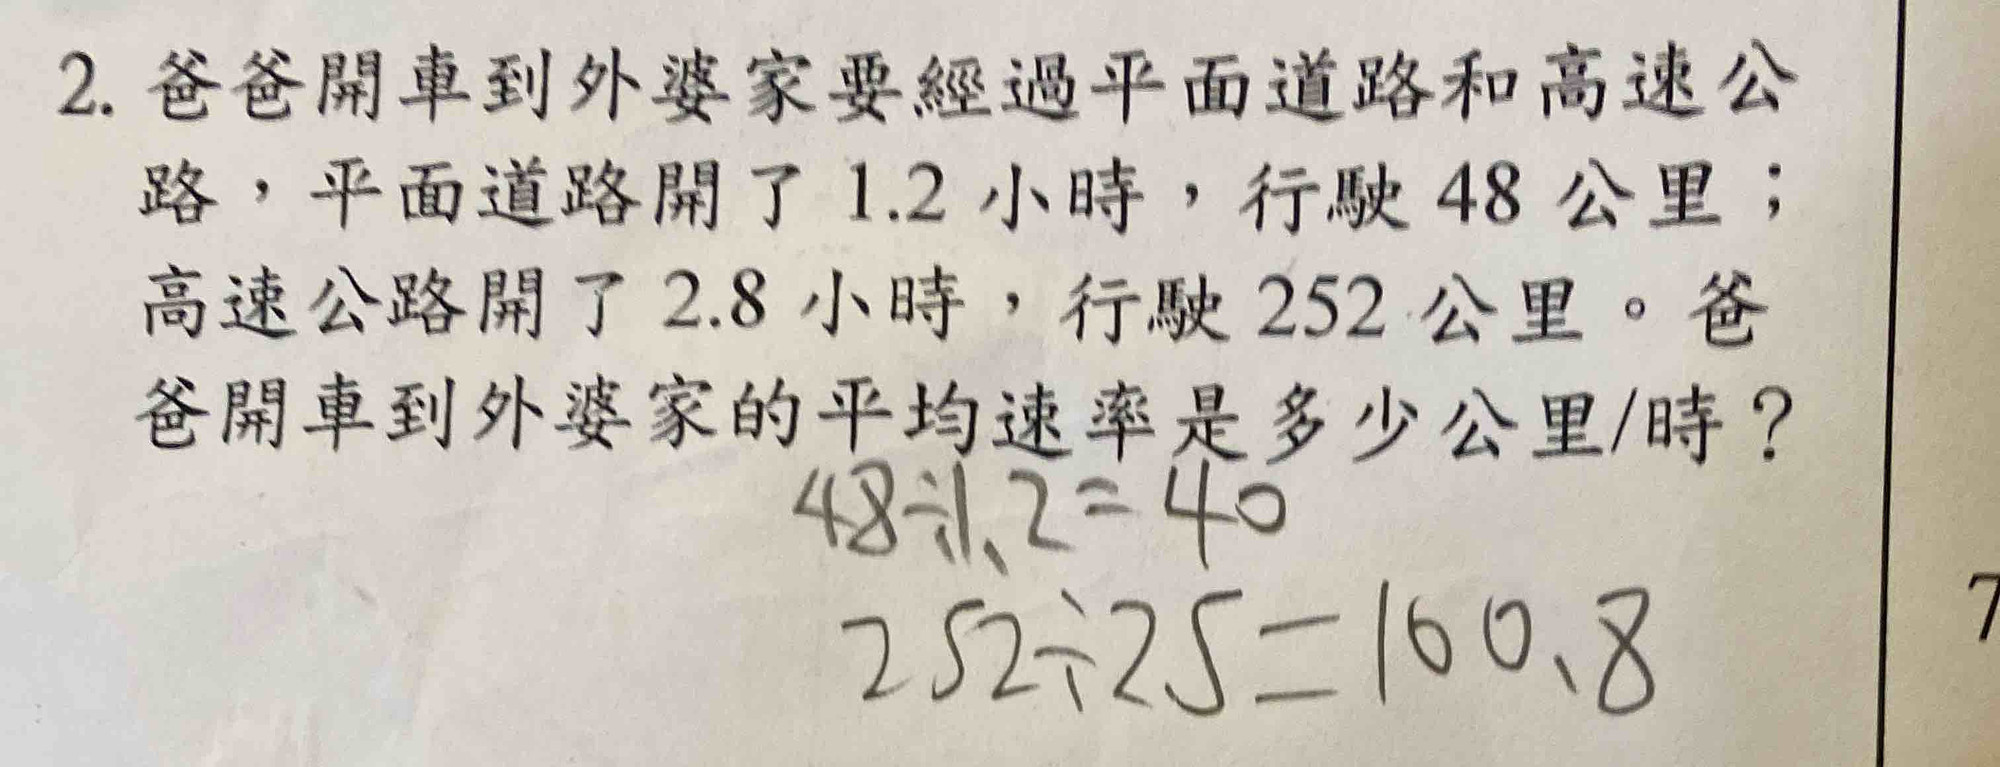 2. 爸爸開車到外婆家要經過平面道路和高速公
路，平面道路開了 1.2 小時，行駛 48 公里；
高速公路開了 2.8 小時，行駛 252 公里。爸
爸開車到外婆家的平均速率是多少公里/時？
48÷1.2=40
252÷25=100.8
7